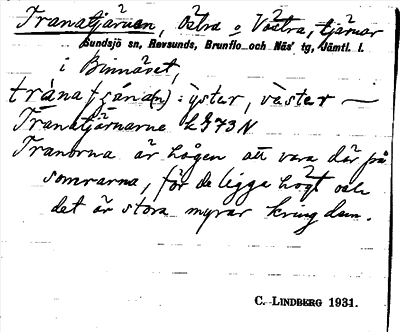 Tranatjärnen, Östra o Västra, tjärnar
Sundsjö sn, Revsunds, Brunflo och Näs' tg, Jämtl. l.
i Binnäset,
yster, väster —
Tranatjärnarne LG 73 N
Tranorna är hågen att vara där på
somrarna, för de ligga högt och
det är stora myrar kring dem.
C. LINDBERG 1931.